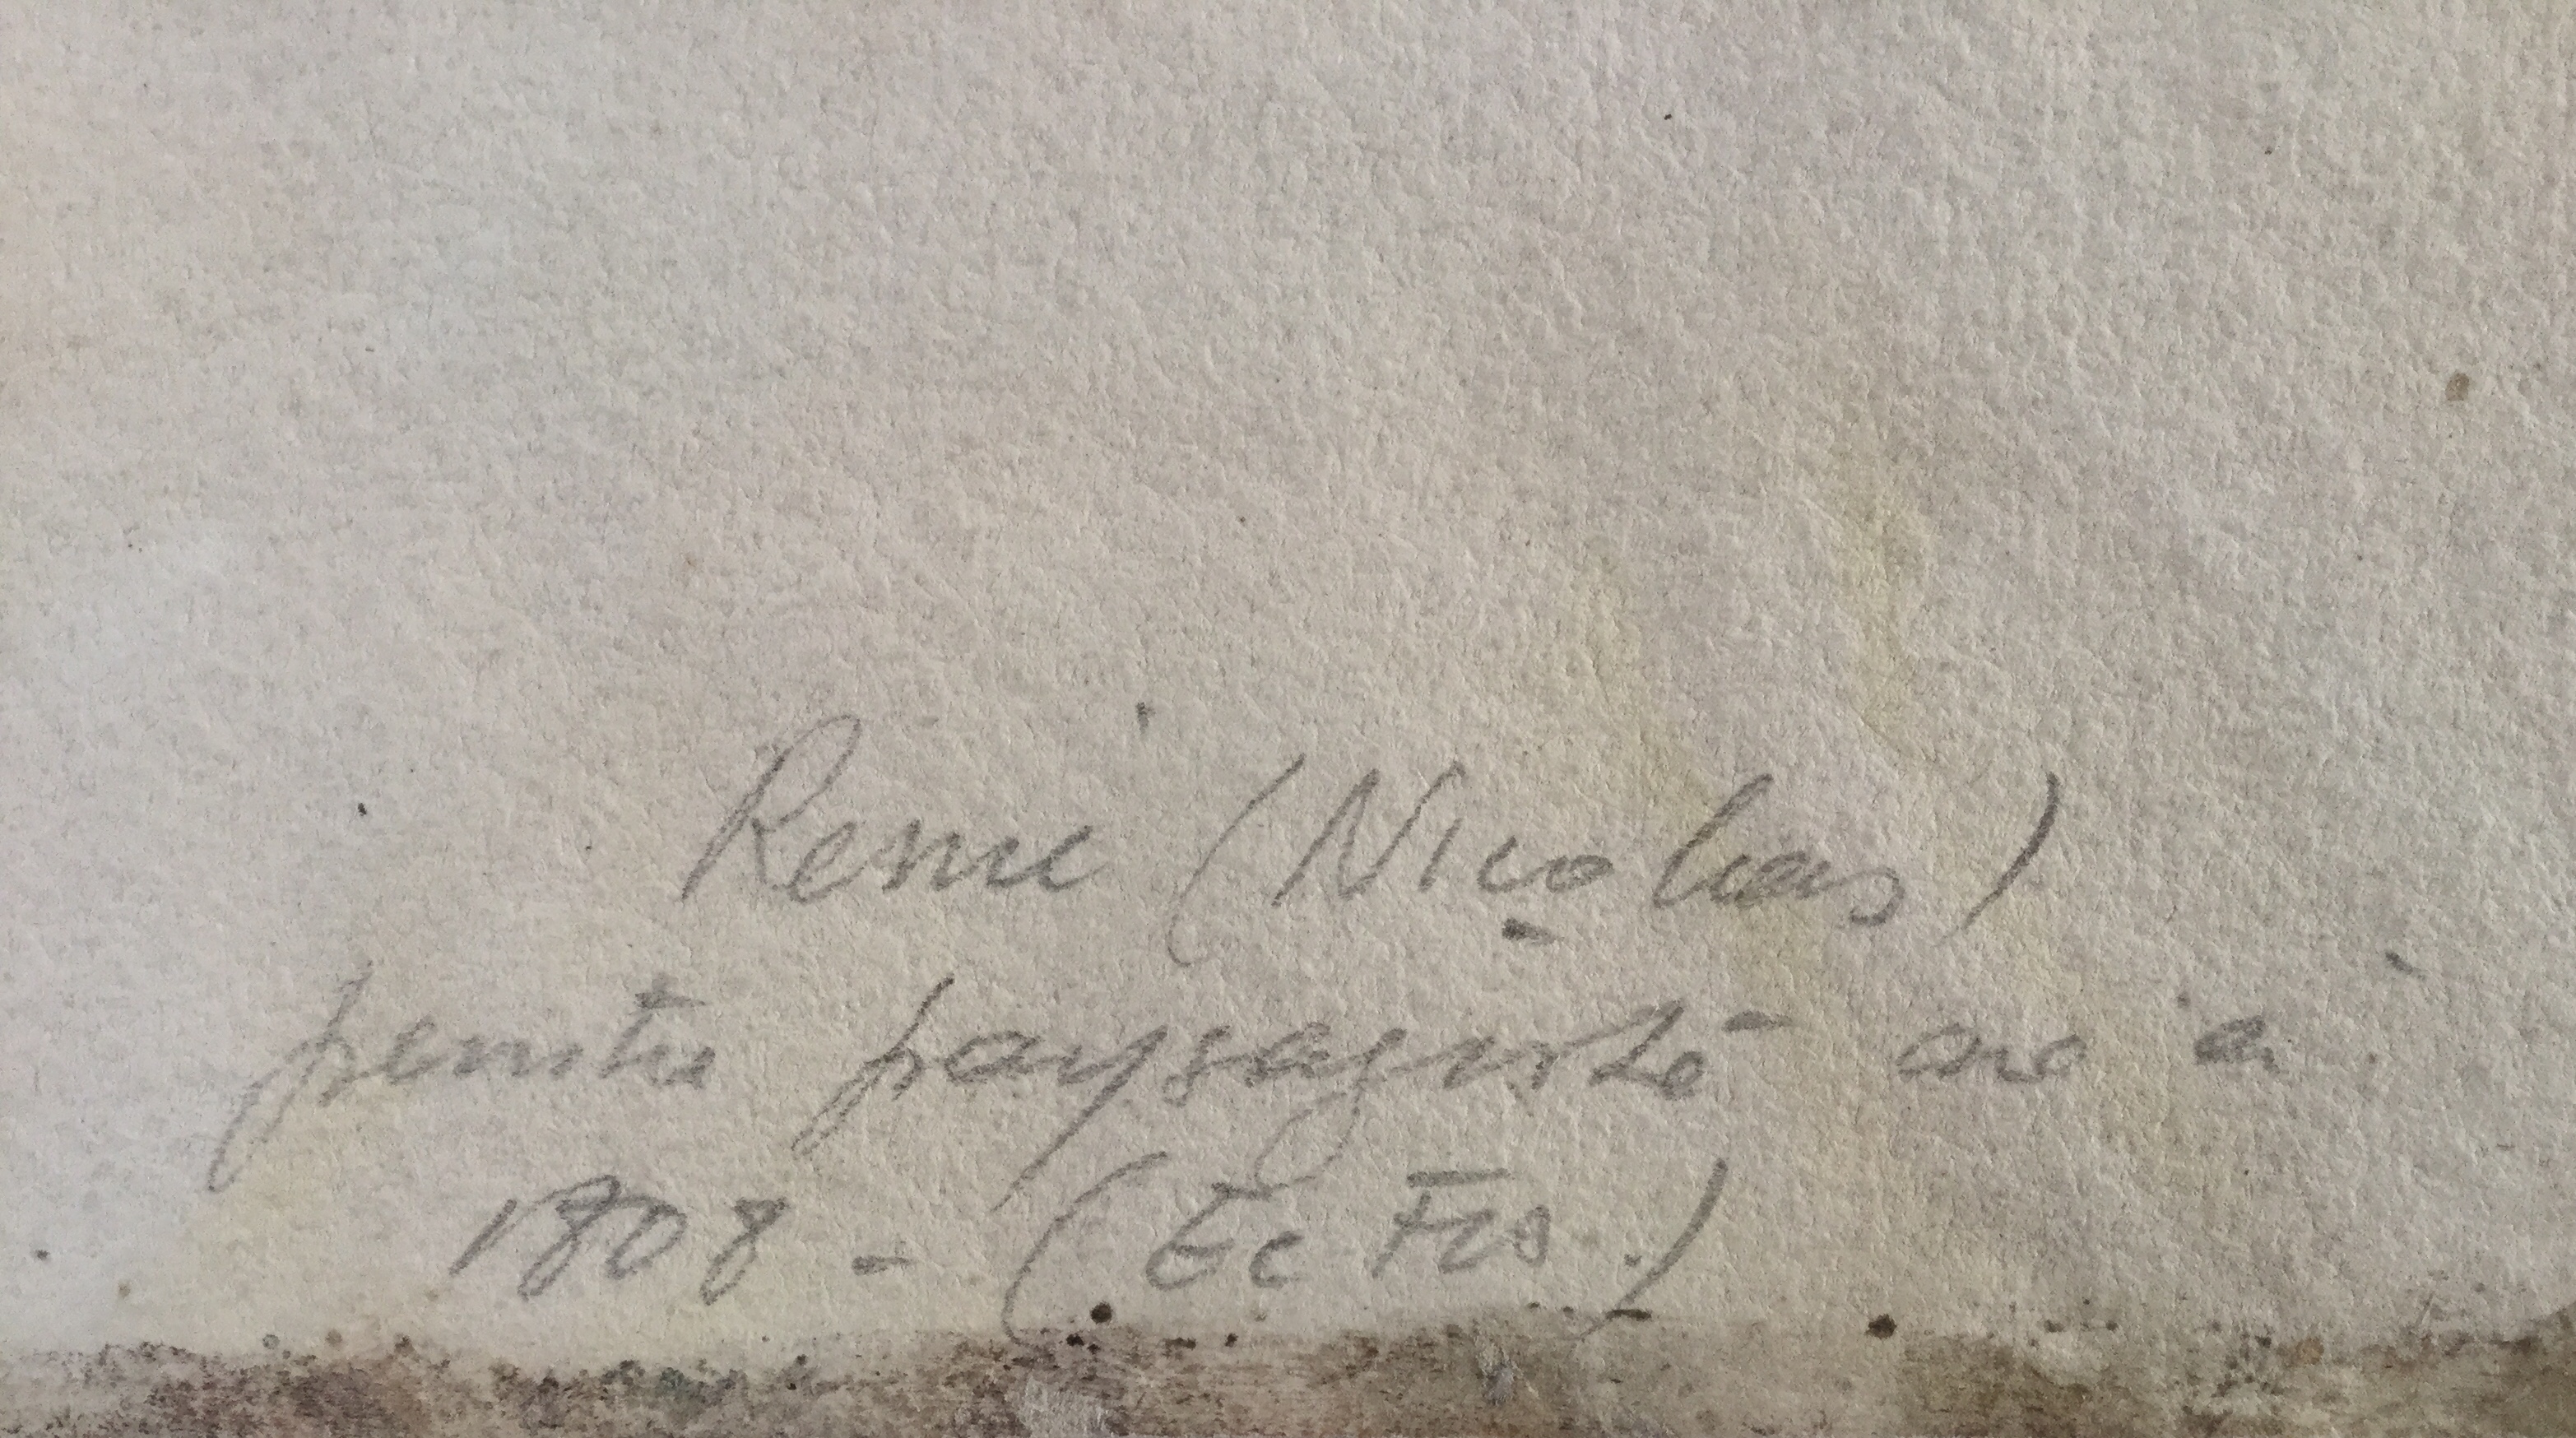 Remi (Nicolas)
peintre paysagiste - né à
1808 - (Ec Fcs.)